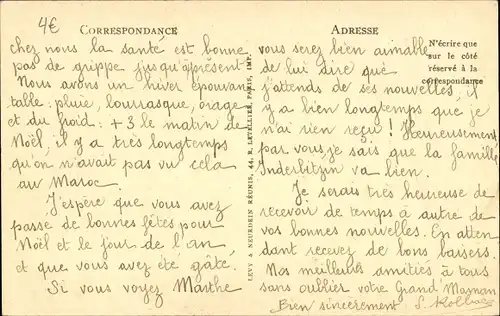 4€
CORRESPONDANCE
chez nous la santé est bonne
pas de grippe jusqu'àprésent
Nous avons un hiver épouvan
table : pluie, bourrasque, orages
et du froid : +3 le matin de
Noël, il y a très longtemps
qu'on n'avait pas vu cela
au Maroc.
J'espère que vous avez
passe de bonnes fêtes pour
Noël et le jour de l'an,
et que vous avez été gâté.
Si vous voyez Marthe
LEVY & NEURDEIN RÉUNIS, 44, R. LETELLIER, PARIS, IMP.
ADRESSE
N'écrire que
sur le côté
réservé à la
correspondance
vous serez bien aimable
de lui dire que
j'attends de ses nouvelles, il
y a bien longtemps que je
n'ai rien reçu ! Heureusement
par vous je sais que la famille
Inderbitzin va bien.
Je serais très heureuse de
recevoir de temps à autre de
vos bonnes nouvelles. En atten
dant recevez de bons baisers.
Nos meilleures amitiés à tous
sans oublier votre Grand'Maman
Bien sincèrement S.